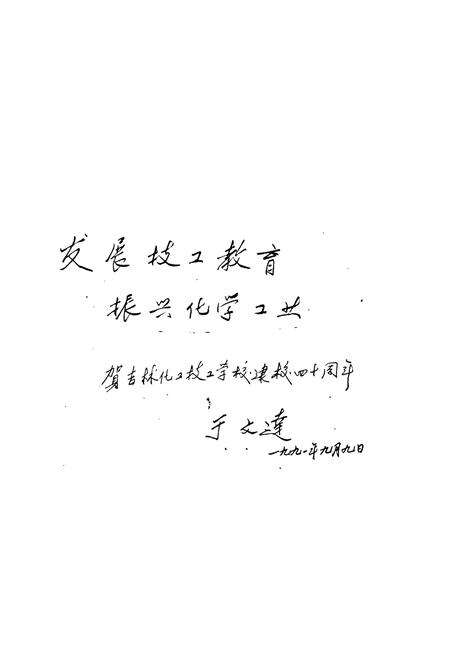 发展技工教育
振兴化学工业
贺吉林化工技工学校建校四十周年
于文达
一九九一年九月九日